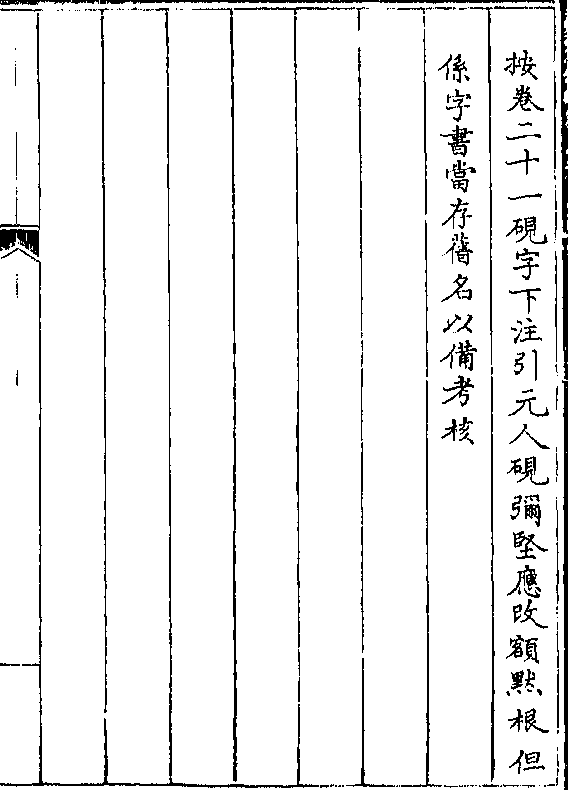 按卷二十一硯字下注引元人硯彌堅應改額黙根但
係字書當存舊名以備考核